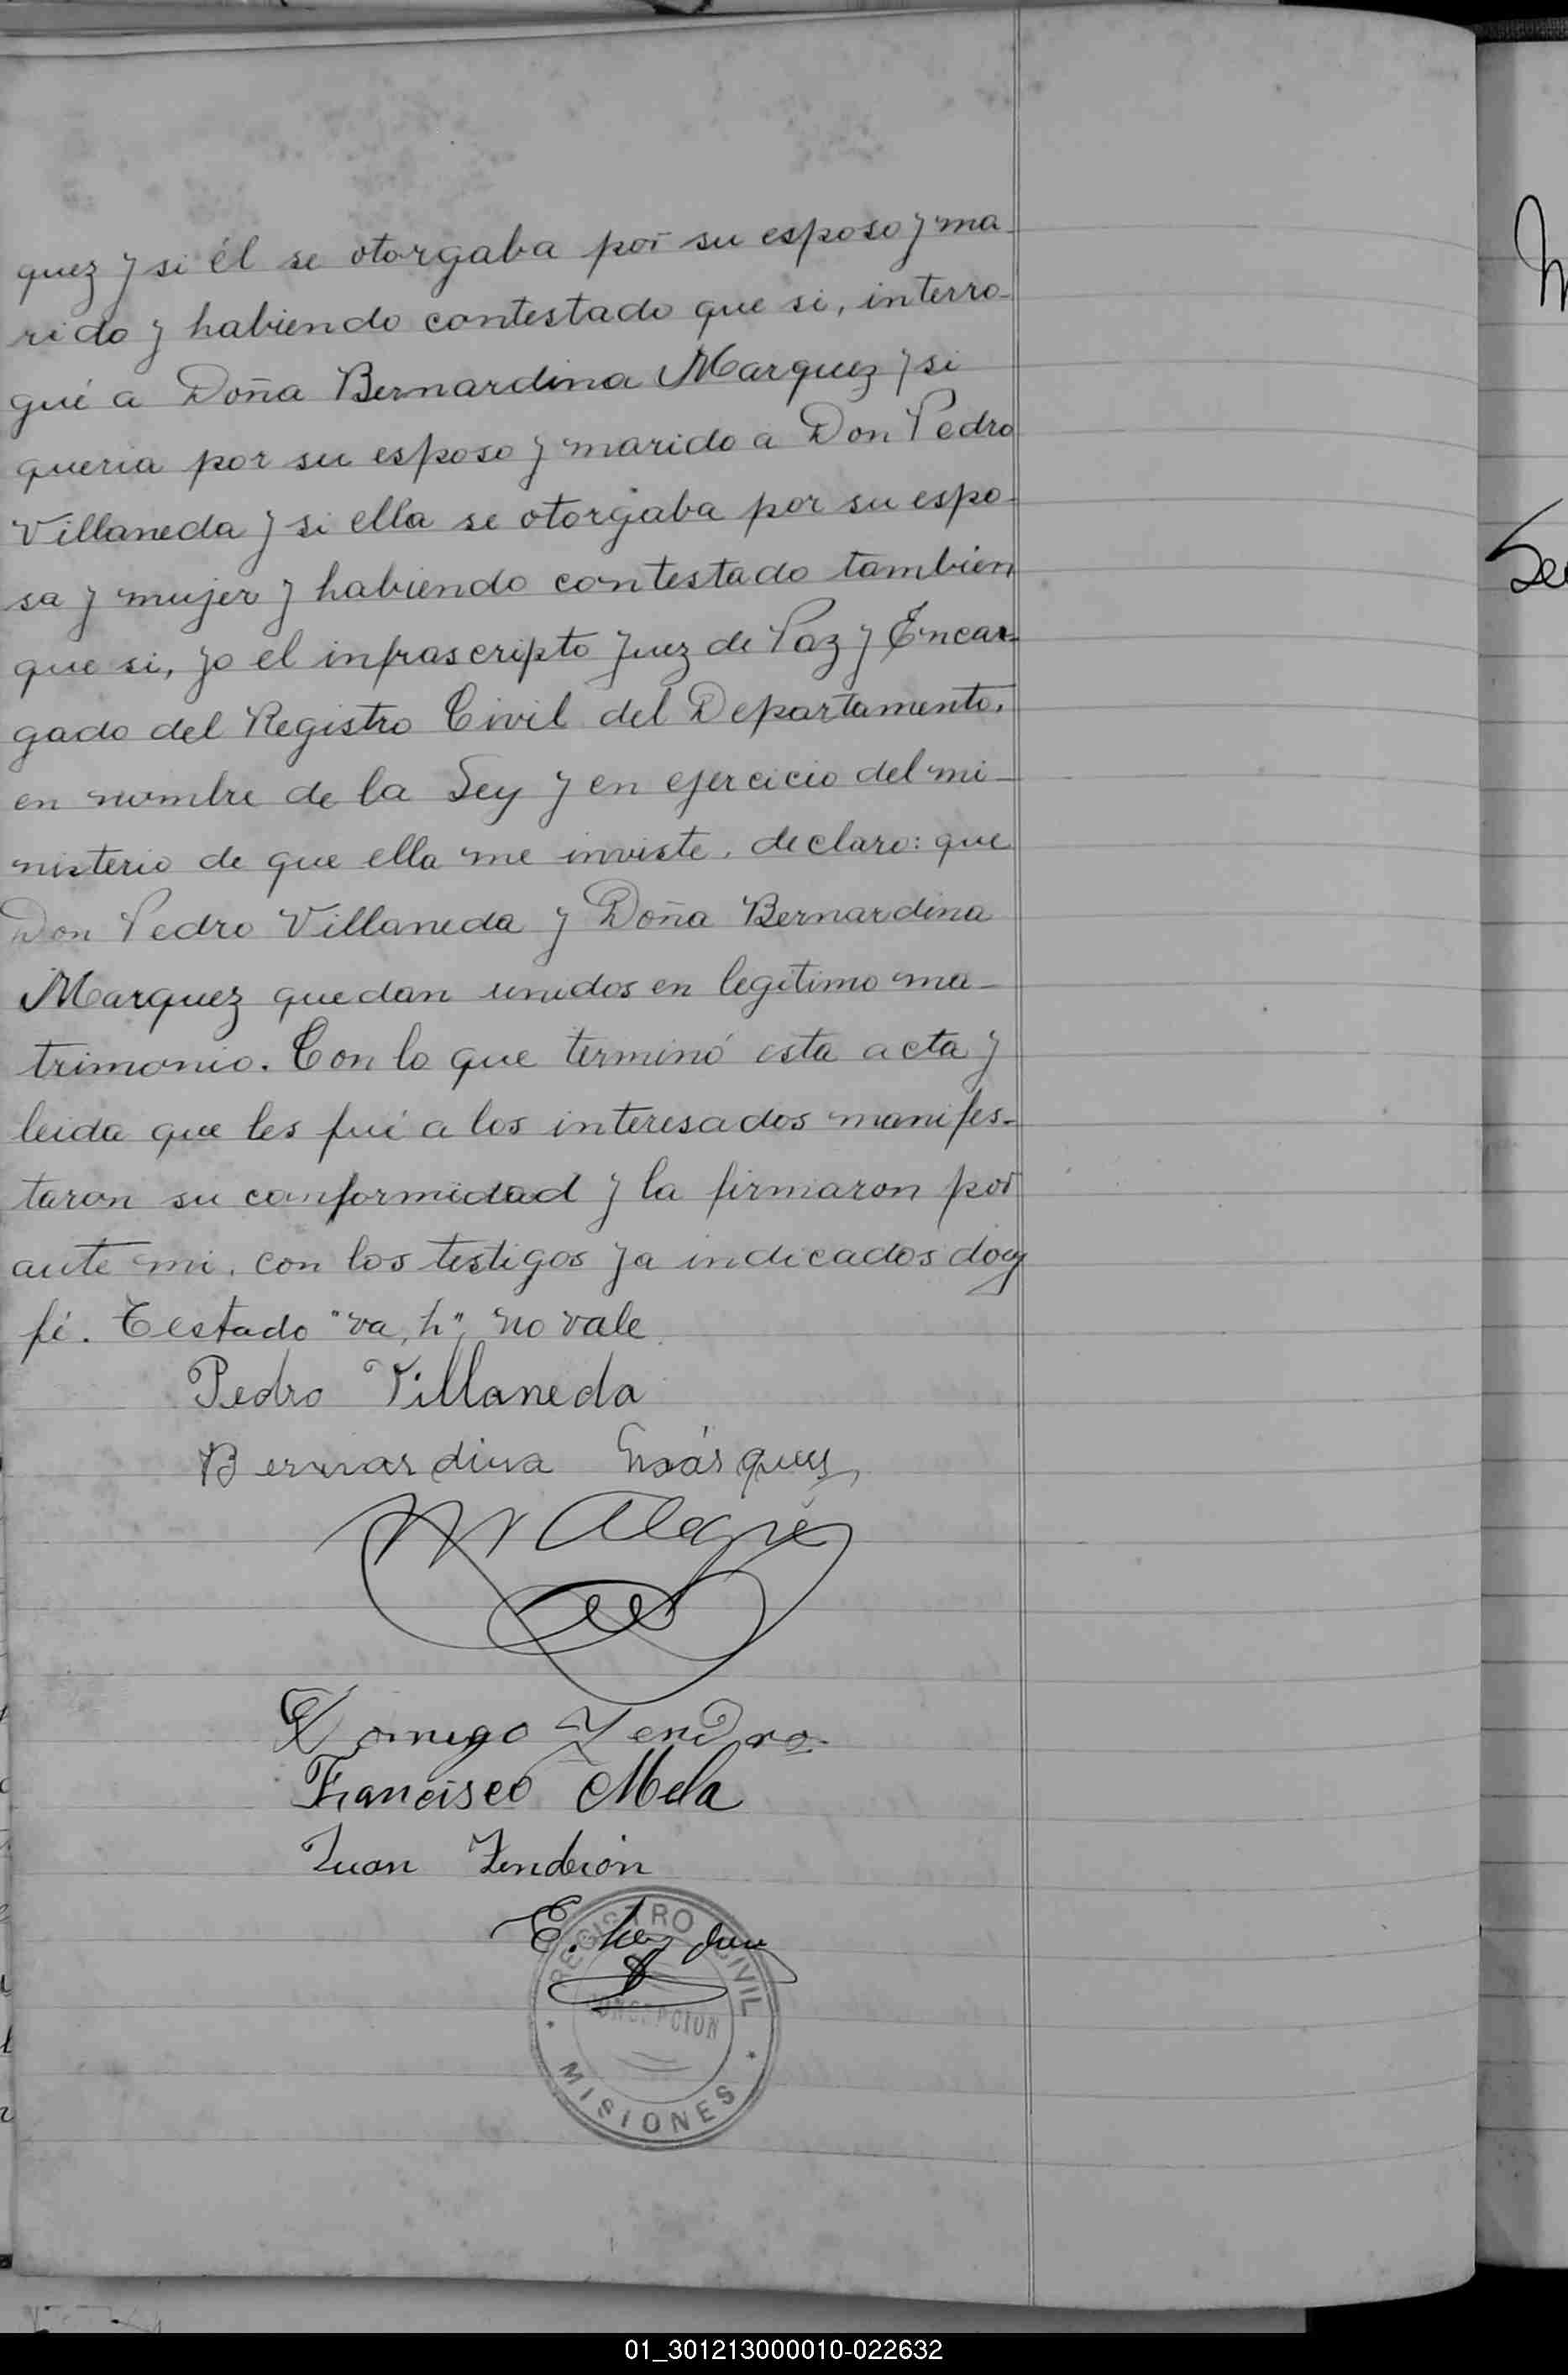 quez y si él se otorgaba por su esposo y ma-
rido y habiendo contestado que si, interro-
gué a Doña Bernardina Marquez y si
queria por su esposo y marido a Don Pedro
Villaneda y si ella se otorgaba por su espo-
sa y mujer y habiendo contestado tambien
que si, yo el infrascripto Juez de Paz y Encar-
gado del Registro Civil del Departamento,
en nombre de la Ley y en ejercicio del mi-
nisterio de que ella me inviste, declaro: que
Don Pedro Villaneda y Doña Bernardina
Marquez quedan unidos en legitimo ma-
trimonio. Con lo que terminó esta acta y
leida que les fué a los interesados manifes-
taron su conformidad y la firmaron por
ante mi, con los testigos ya indicados doy
fé. Testado "va, h", no vale
Pedro Villaneda
Bernardina Márquez
Alegre
Domingo
Francisco Mela
Juan
E.
REGISTRO CIVIL
CONCEPCION
MISIONES
01_301213000010-022632